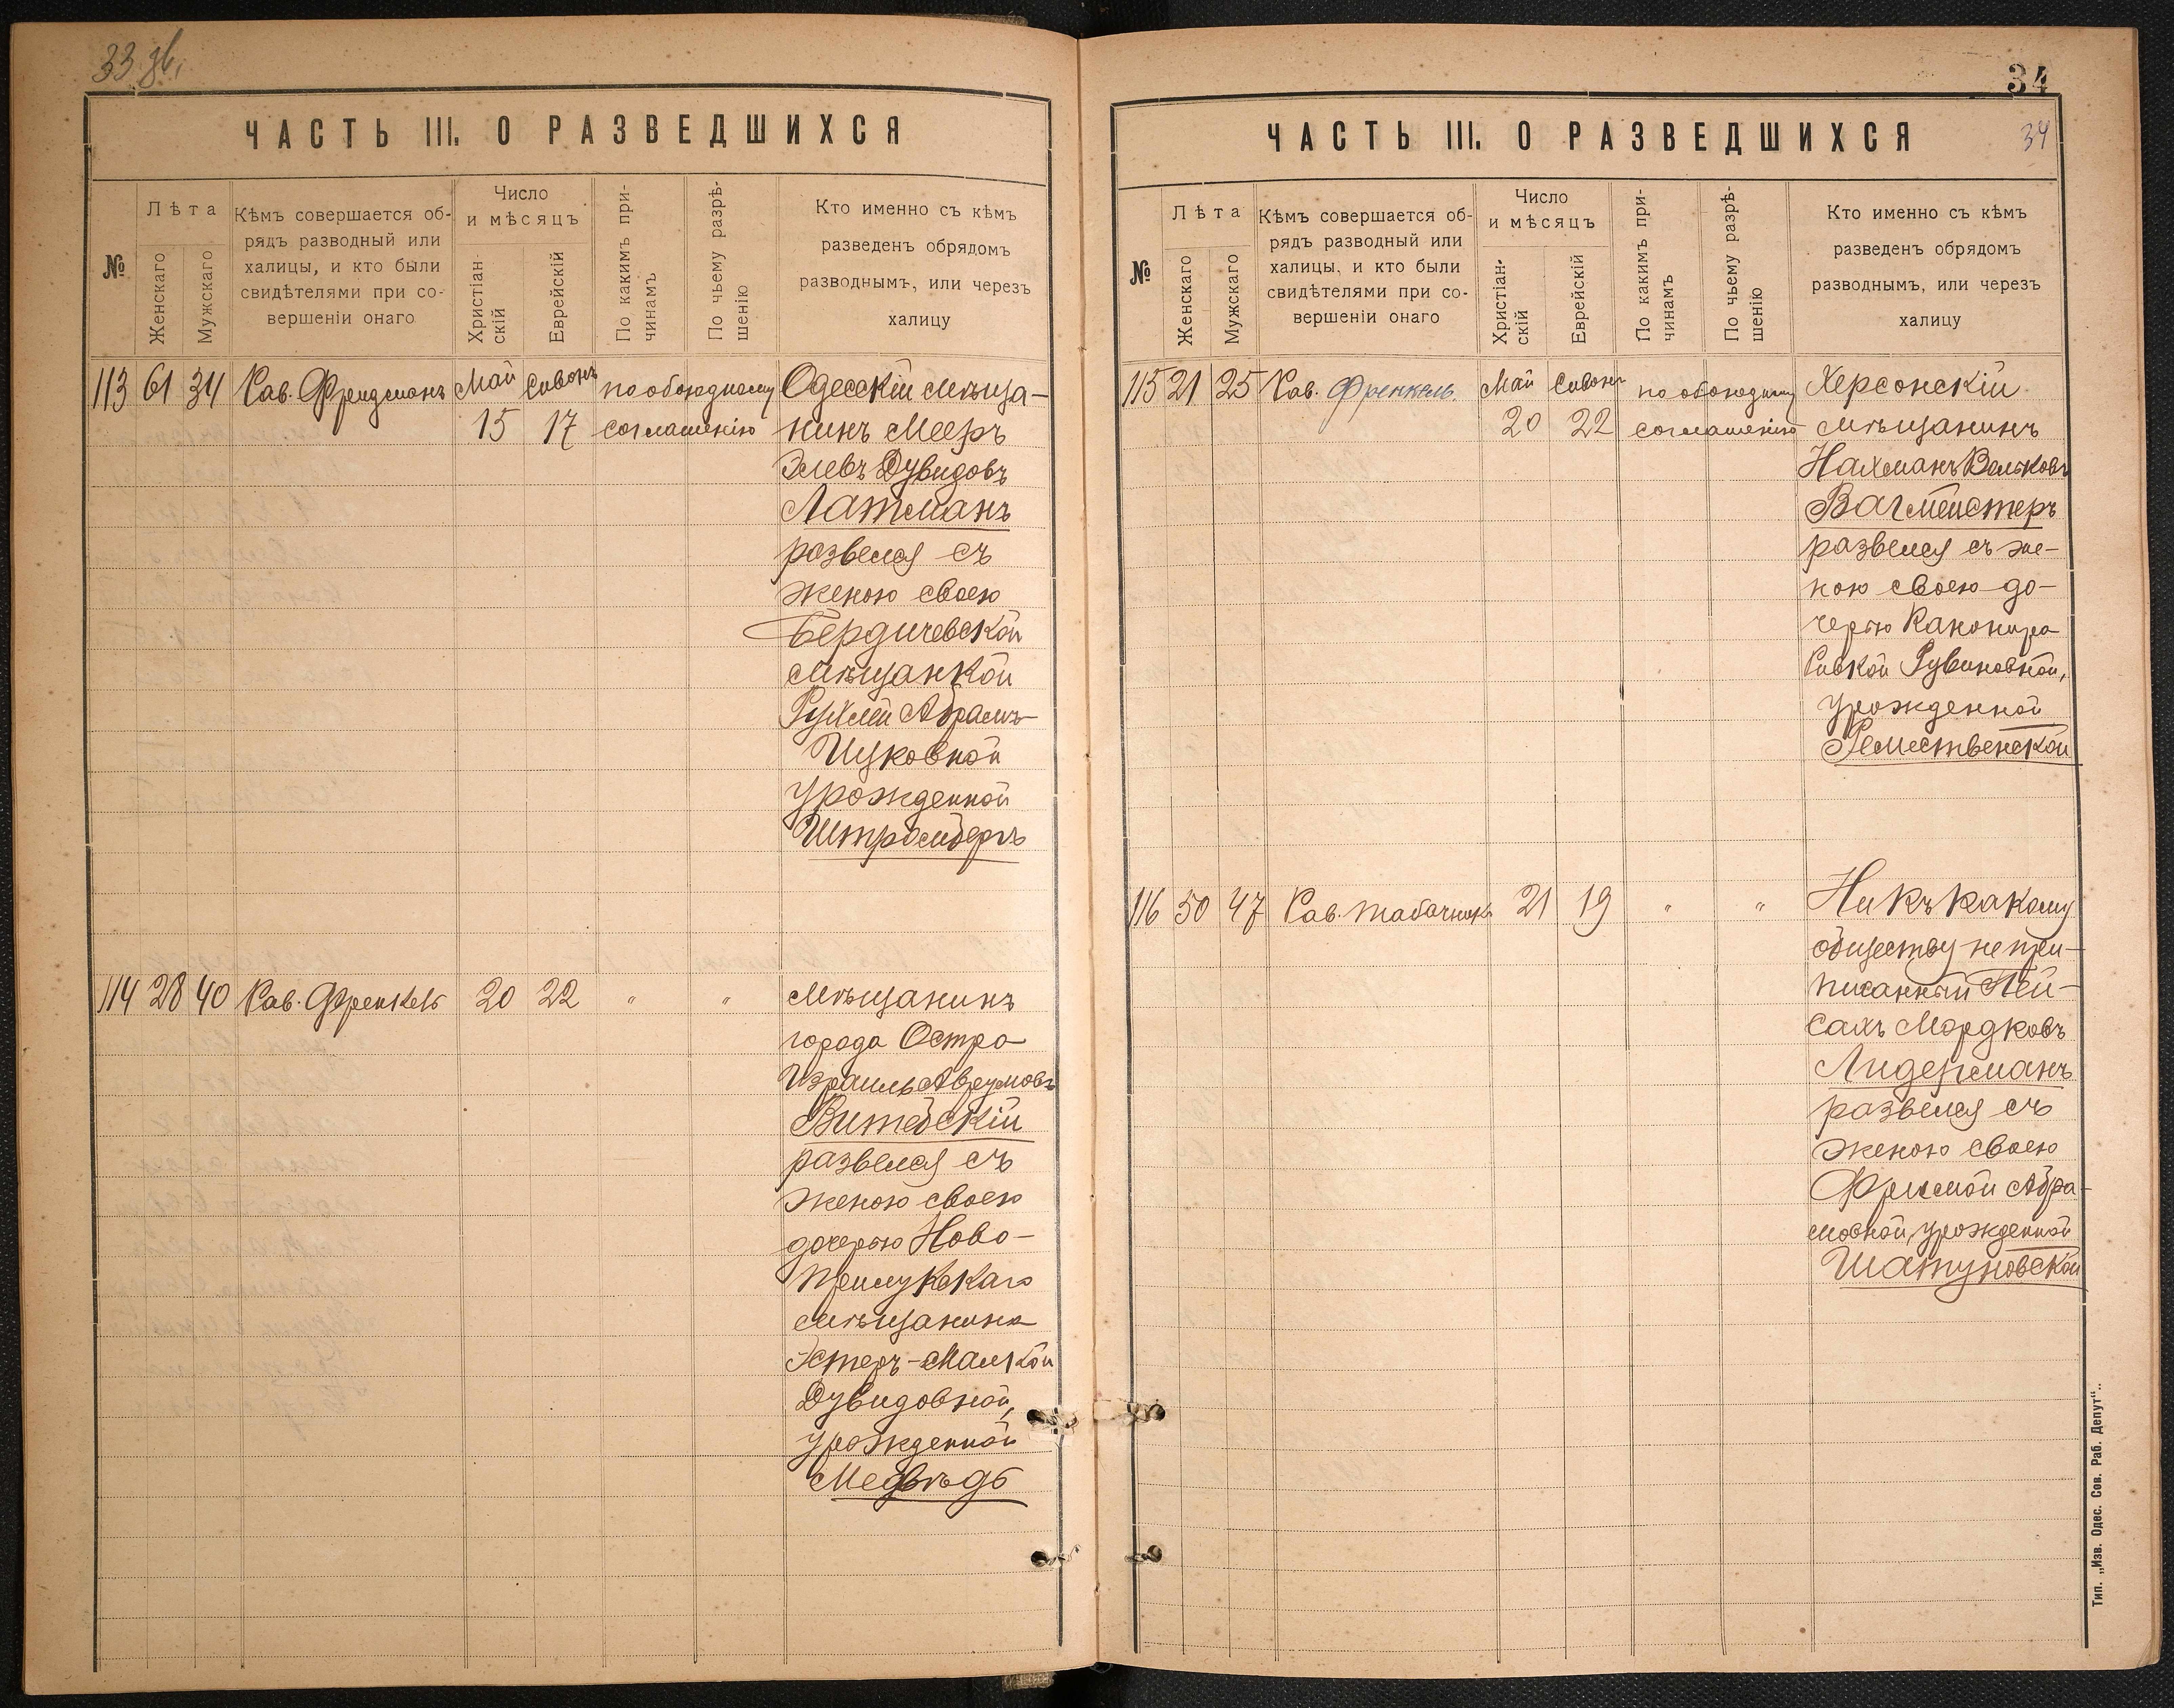 33 зв.
ЧАСТЬ III. О РАЗВЕДШИХСЯ
№
Лѣта
Женскаго
Мужскаго
Кѣмъ совершается об-
рядъ разводный или
халицы, и кто были
свидѣтелями при со-
вершеніи онаго
Число
и мѣсяцъ
Христіан-
скій
Еврейскій
По какимъ при-
чинамъ
По чьему разрѣ-
шенію
Кто именно съ кѣмъ
разведенъ обрядомъ
разводнымъ, или черезъ
халицу
113 61 34 Рав. Фридманъ Май Сивонъ по обоюдному Одесскій мѣща-
15 17 соглашенію нинъ Мееръ
Элевъ Дувидовъ
Латманъ
развелся съ
женою своею
Бердичевской
мѣщанкой
Рухлей Абрамъ-
Ицковной
урожденной
Штромбергъ
114 28 40 Рав. Френкель 20 22 " " Мѣщанинъ
города Остра
Израиль Аврумовъ
Витебскій
развелся съ
женою своею
дочерью Ново-
Прилукскаго
мѣщанина
Эстеръ-Малкой
Дувидовной,
урожденной
Медвѣдь
34
ЧАСТЬ III. О РАЗВЕДШИХСЯ
34
№
Лѣта
Женскаго
Мужскаго
Кѣмъ совершается об-
рядъ разводный или
халицы, и кто были
свидѣтелями при со-
вершеніи онаго
Число
и мѣсяцъ
Христіан-
скій
Еврейскій
По какимъ при-
чинамъ
По чьему разрѣ-
шенію
Кто именно съ кѣмъ
разведенъ обрядомъ
разводнымъ, или черезъ
халицу
115 21 25 Рав. Френкель. Май Сивонъ по обоюдному Херсонскій
20 22 соглашенію мѣщанинъ
Нахманъ Вельковъ
Вагмейстеръ
развелся съ же-
ною своею до-
черью Канонира
Ривкой Рувиновной,
урожденной
Селественской
116 50 47 Рав. Табачникъ 21 19 " " Ни къ какому
обществу не при-
писанный Пей-
сахъ Мордковъ
Лидерманъ
развелся съ
женою своею
Фримой Абра-
мовной, урожденной
Шатуновской
Тип. „Изв. Одес. Сов. Раб. Депут“..